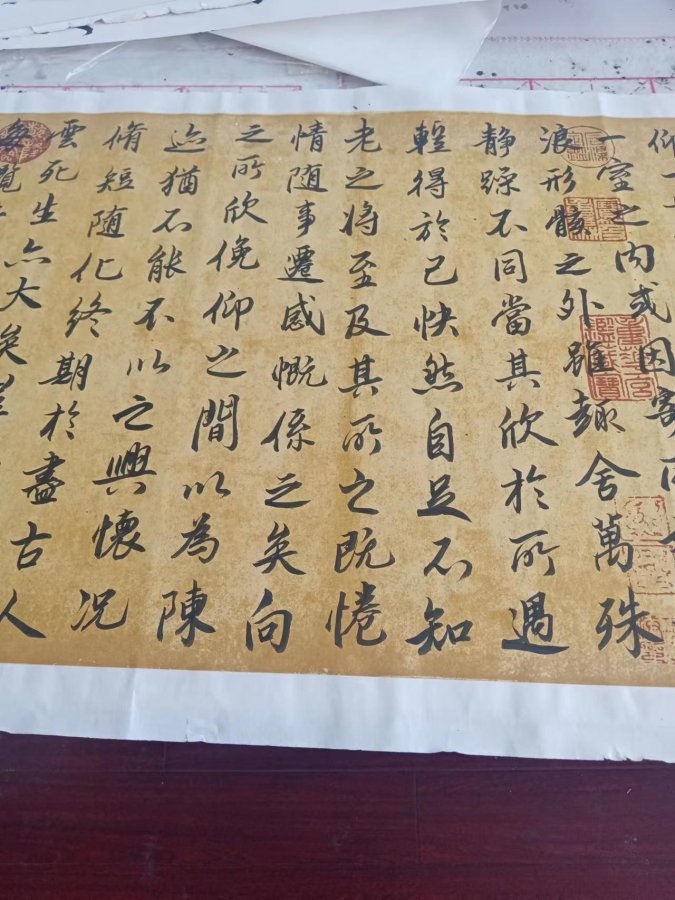 仰一
一室之内或因寄所
浪形骸之外雖趣舍萬殊
静躁不同當其欣於所遇
暫得於己快然自足不知
老之將至及其所之既惓
情随事遷感慨係之矣向
之所欣俛仰之間以為陳
迹猶不能不以之興懷况
脩短随化終期於盡古人
雲死生亦大矣豈
每覽